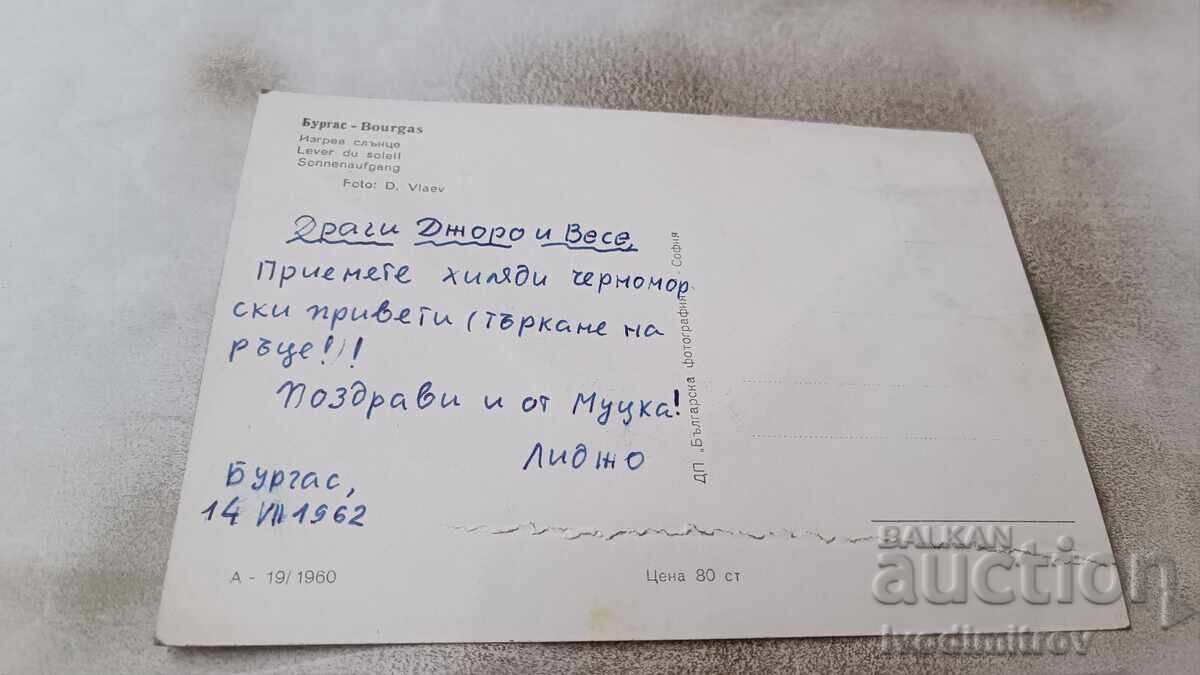 Бургас - Bourgas
Изгрев слънце
Lever du soleil
Sonnenaufgang
Foto: D. Vlaev
Драги Джоро и Весе,
Приемете хиляди черномор-
ски привети (търкане на
ръце!)!
Поздрави и от Муцка!
Лиджо
Бургас,
14 VII 1962
А - 19/1960
Цена 80 ст
ДП „Българска фотография" - София
BALKAN
auction
ivodimitrov